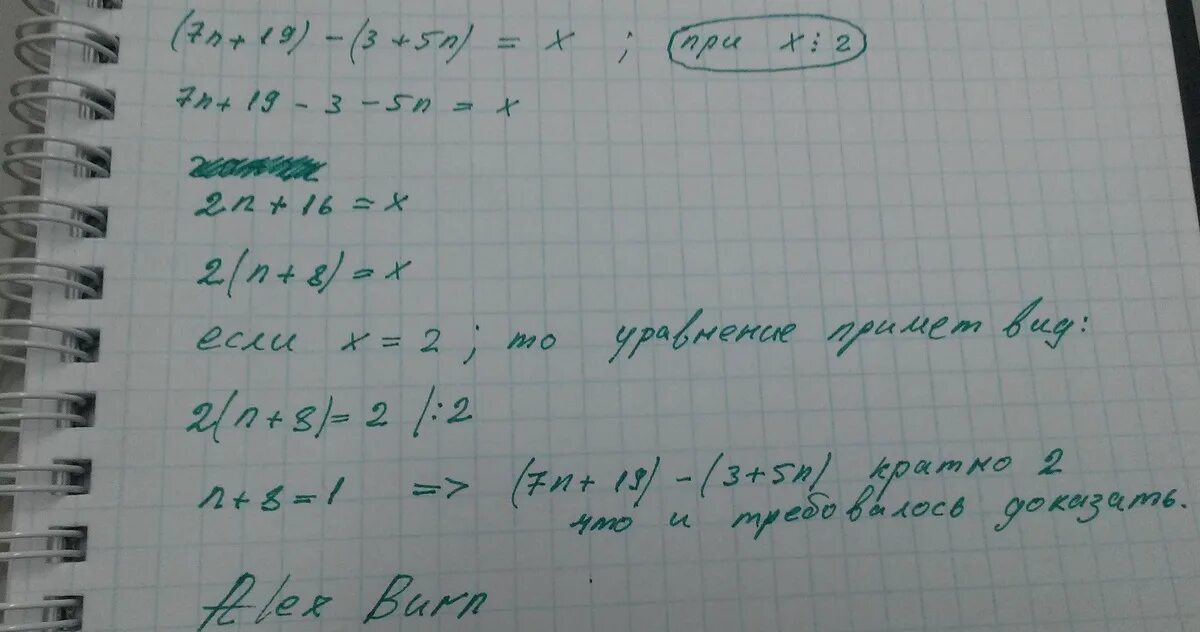 (7n + 19) - (3 + 5n) = x ; при x ⋮ 2
7n + 19 - 3 - 5n = x
2n + 16 = x
2(n + 8) = x
если x = 2 ; то уравнение примет вид:
2(n + 8) = 2 /:2
n + 8 = 1 => (7n + 19) - (3 + 5n) кратно 2
что и требовалось доказать.
Alex Burn